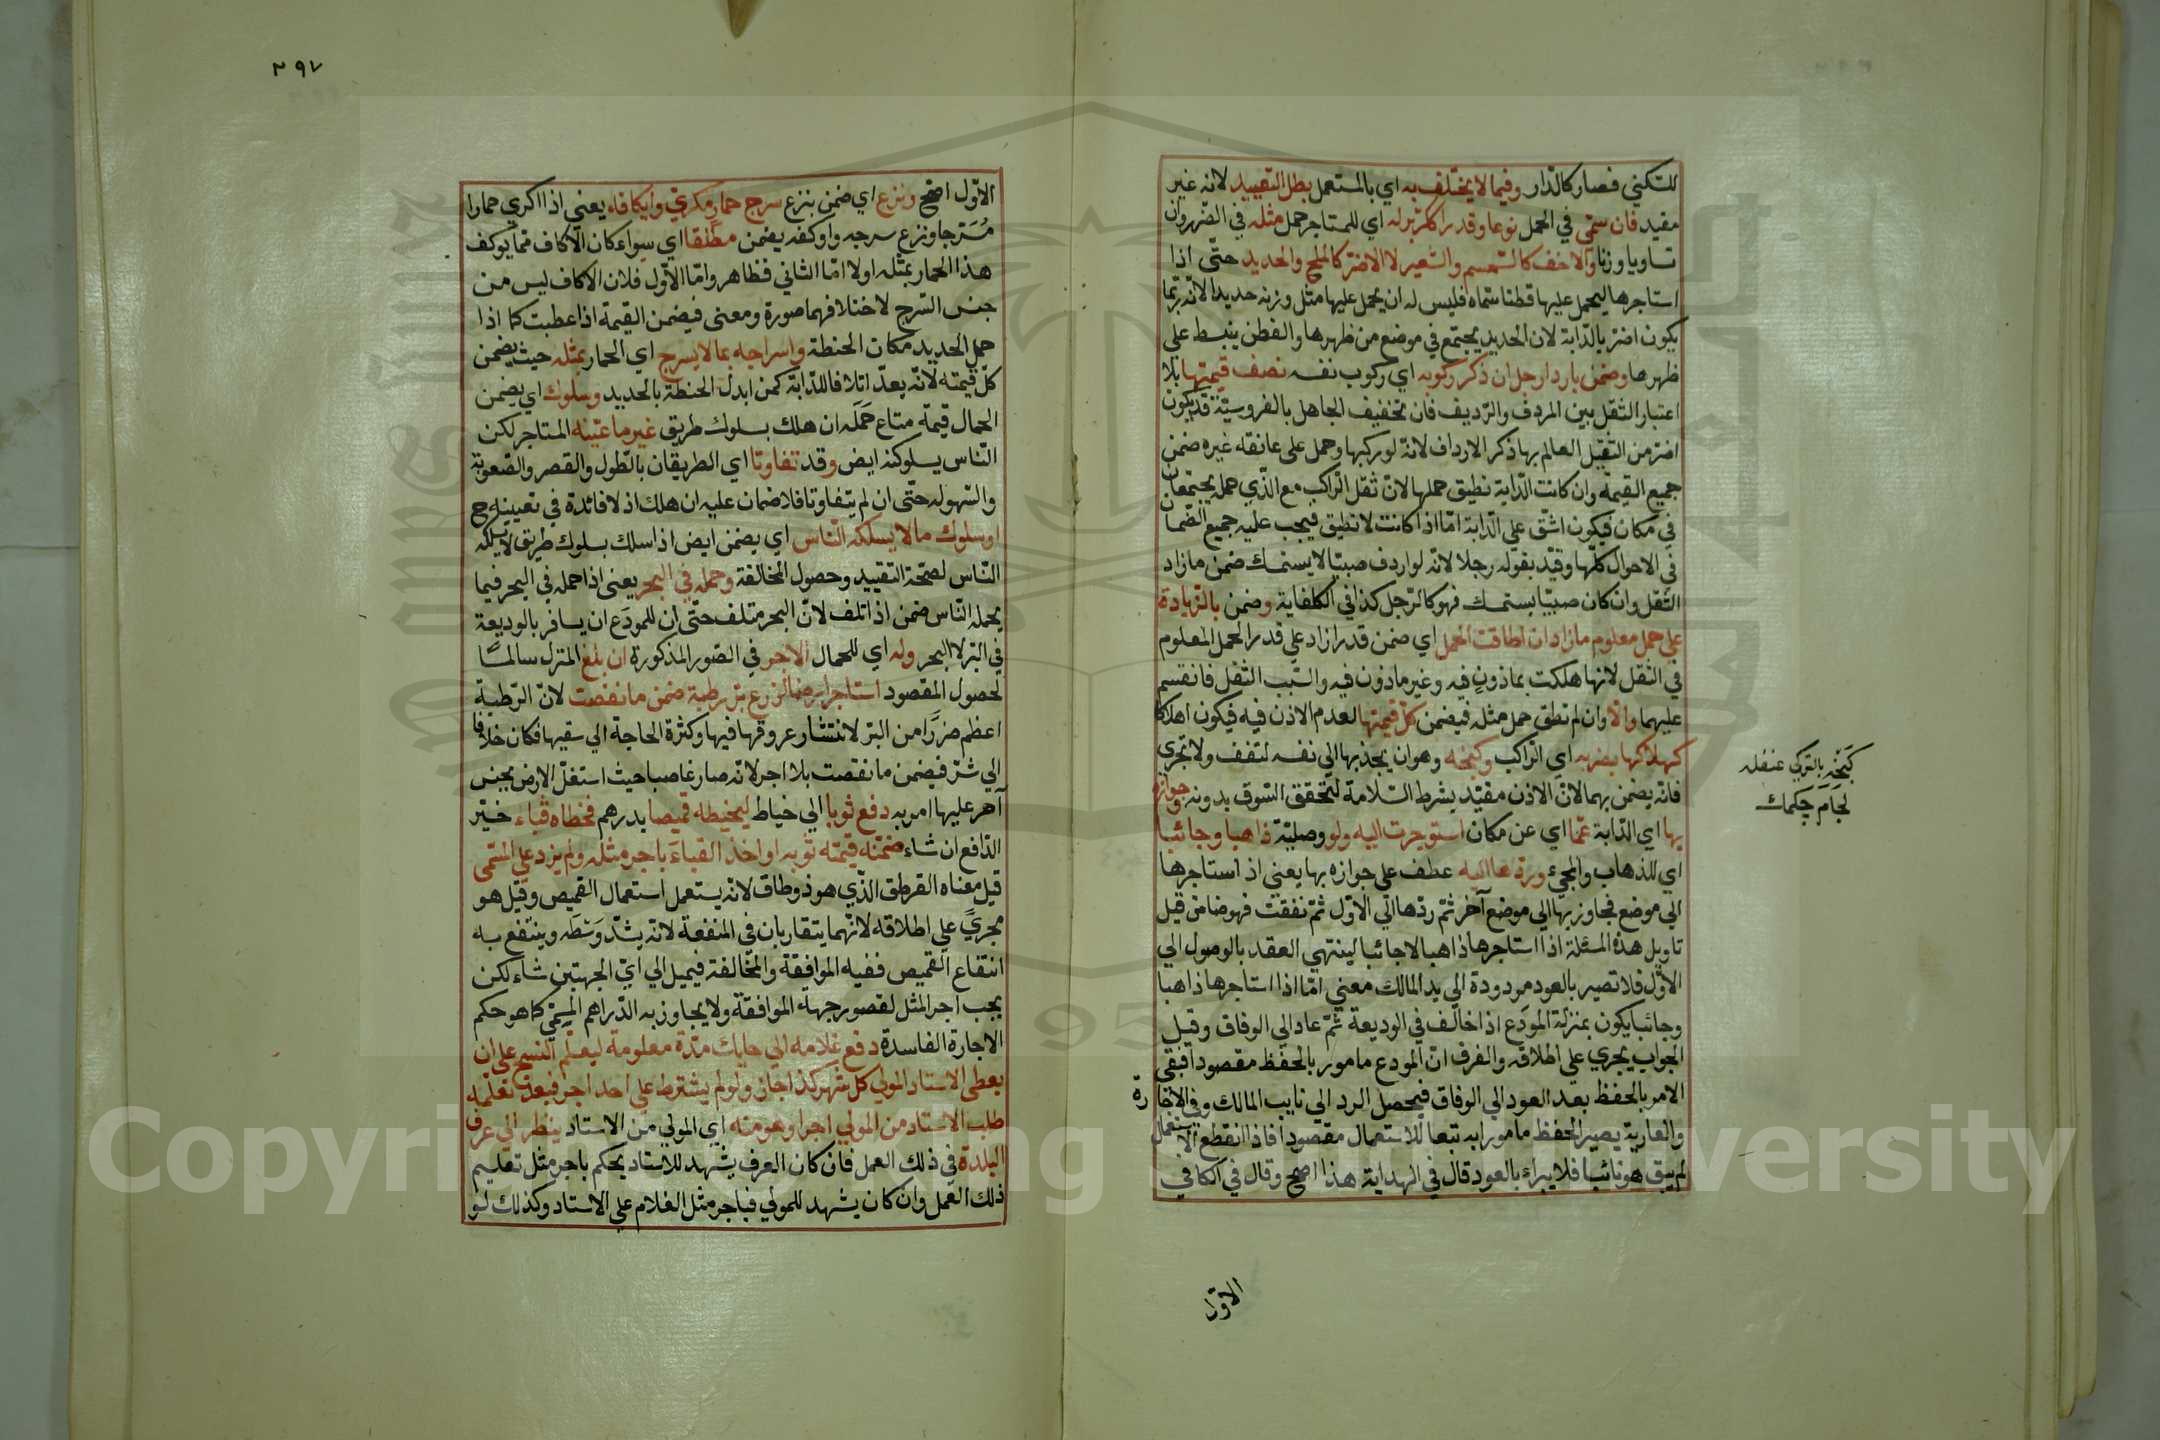 للسكني فصار كالدّار وفيما لا يختلف به اي بالمستعمل بطل التقييد لانه غير
مقيد فان سمّي في الحمل نوعا وقدرا ككرّ برّ له اي للمستاجر حمل مثله في الضرر وان
تساويا وزنا والاخف كالسمسم والشعير لا الاضر كالملح والحديد حتّى اذا
استاجرها ليحمل عليها قطنا سمّاه فليس له ان يحمل عليها مثل وزنه حديدا لانّه ربّما
يكون اضر بالدّابة لان الحديد يجتمع في موضع من ظهرها والقطن ينبسط على
ظهرها وضمن بارداف رجل ان ذكر ركوبه اي ركوب نفسه نصف قيمتها بلا
اعتبار الثقل بين المردف والرّديف فان تخفيف الجاهل بالفروسيّة قد يكون
اضر من الثقيل العالم بها ذكر الارداف لانّه لو ركبها وحمل على عاتقه غيره ضمن
جميع القيمة وان كانت الدّابة تطيق حملها لانّ ثقل الرّاكب مع الذّي حمله يجتمعان
في مكان فيكون اشقّ على الدّابة امّا اذا كانت لا تطيق فيجب عليه جميع الضّمان
في الاحوال كلّها وقيّد بقوله رجلا لانّه لو اردف صبيّا لا يستمسك ضمن ما زاد
الثقل وان كان صبيّا يستمسك فهو كالرّجل كذا في الكفاية وضمن بالزّيادة
على حمل معلوم ما زاد ان اطاقت الحمل اي ضمن قدر ما زاد على قدر الحمل المعلوم
في الثقل لانها هلكت بماذون فيه وغير ماذون فيه والسّبب الثقل فانقسم
عليهما والّا وان لم تطق حمل مثله فيضمن كلّ قيمتها لعدم الاذن فيه فيكون اهلاكا
كهلاكها بضربه اي الرّاكب وكبحه وهو ان يجذبها الي نفسه لتقف ولا تجري
فانّه يضمن بهما لانّ الاذن مقيّد بشرط السّلامة لتحقق السّوق بدونه وجوازه
بها اي الدّابة عمّا اي عن مكان استوجرت اليه ولو وصليّة ذاهبا وجائيا
اي للذهاب والمجيء وردّها اليه عطف على جوازه بها يعني اذ استاجرها
الي موضع فجاوز بها الي موضع آخر ثمّ ردّها الي الاوّل ثمّ نفقت فهو ضامن قيل
تاويل هذه المسئلة اذا استاجرها ذاهبا لا جائيا لينتهي العقد بالوصول الي
الاوّل فلا تصير بالعود مردودة الي يد المالك معني امّا اذا استاجرها ذاهبا
وجائيا يكون بمنزلة المودَع اذا خالف في الوديعة ثمّ عاد الي الوفاق وقيل
الجواب يجري على اطلاقه والفرق انّ المودع مامور بالحفظ مقصودا فبقي
الامر بالحفظ بعد العود الي الوفاق فيحصل الرد الي نايب المالك وفي الاجارة
والعارية يصير الحفظ مامورا به تبعا للاستعمال مقصودا فاذا انقطع الاستعمال
لم يبق هو نائبا فلا يبراء بالعود قال في الهداية هذا اصحّ وقال في الكافي
كَبَحْتُه بالتركي
لجام چكمك
الاوّل
٣٩٧
الاوّل اصحّ ونزع اي ضمن بنزع سرج حمار مكريّ وايكافه يعني اذا اكري حمارا
مُسَرجا ونزع سرجه واوكفه يضمن مطلقا اي سواء كان الاكاف ممّا يوكف
هذا الحمار بمثله او لا امّا الثاني فظاهر وامّا الاوّل فلان الاكاف ليس من
جنس السّرج لاختلافهما صورة ومعنى فيضمن القيمة اذا عطبت كما اذا
حمل الحديد مكان الحنطة واسراجه بما لا يسرج اي الحمار بمثله حيث يضمن
كلّ قيمته لانّه يعدّ اتلافا للدّابّة كمن ابدل الحنطة بالحديد وسلوك اي يضمن
الحمال قيمة متاع حَمَلَه ان هلك بسلوك طريق غير ما عيّنه المستاجر لكن
النّاس يسلوكنه ايض وقد تفاوتا اي الطريقان بالطول والقصر والصّعوبة
والسّهولة حتّى ان لم يتفاوتا فلا ضمان عليه ان هلك اذ لا فائدة في تعيينه ح
او سلوك ما لا يسلكه النّاس اي يضمن ايض اذا سلك بسلوك طريق لا يسلكه
النّاس لصحّة التقييد وحصول المخالفة وحمله في البحر يعني اذا حمله في البحر فيما
يحمله النّاس ضمن اذ اتلف لانّ البحر متلف حتّى ان للمودَع ان يسافر بالوديعة
في البرّ لا البحر وله اي للحمال الاجر في الصّور المذكورة ان بلغ المنزل سالمًا
لحصول المقصود استاجر ارضا لزرع برّ رطبة ضمن ما نقصت لانّ الرّطبة
اعظم ضررًا من البرّ لانتشار عروقها فيها وكثرة الحاجة الي سقيها فكان خلافا
الي شرّ فيضمن ما نقصت بلا اجر لانّه صار غاصبا حيث استغلّ الارض بجنس
آخر عليها امر به دفع ثوبا الي خياط ليخيطه قميصا بدرهم فخطاه قباء خيّر
الدّافع ان شاء ضمّنه قيمة ثوبه او اخذ القباءَ باجر مثله ولم يزد على المسمّى
قيل معناه القرطق الذّي هو ذو طاق لانّه يستعمل استعمال القميص وقيل هو
مجريً على اطلاقه لانّهما يتقاربان في المنفعة لانّه يشدّ وَسَطَه وينتفع به
انتفاع القميص ففيه الموافقة والمخالفة فيميل الي ايّ الجهتين شاء لكن
يجب اجر المثل لقصور جهة الموافقة ولا يجاوز به الدّراهم المسمّي كما هو حكم
الاجارة الفاسدة دفع غلامه الي حايك مدّة معلومة ليعلّم النسج على ان
يعطى الاستاد المولي كل شهر كذا جاز ولو لم يشترط على احد اجر فبعد تعلّمه
طلب الاستاد من المولي اجرا وهو منه اي المولي من الاستاد ينظر الي عرف
البلدة في ذلك العمل فان كان العرف يشهد للاستاد يحكم باجر مثل تعليم
ذلك العمل وان كان يشهد للمولي فباجر مثل الغلام على الاستاد وكذلك لو
Copyright © King Saud University
1957